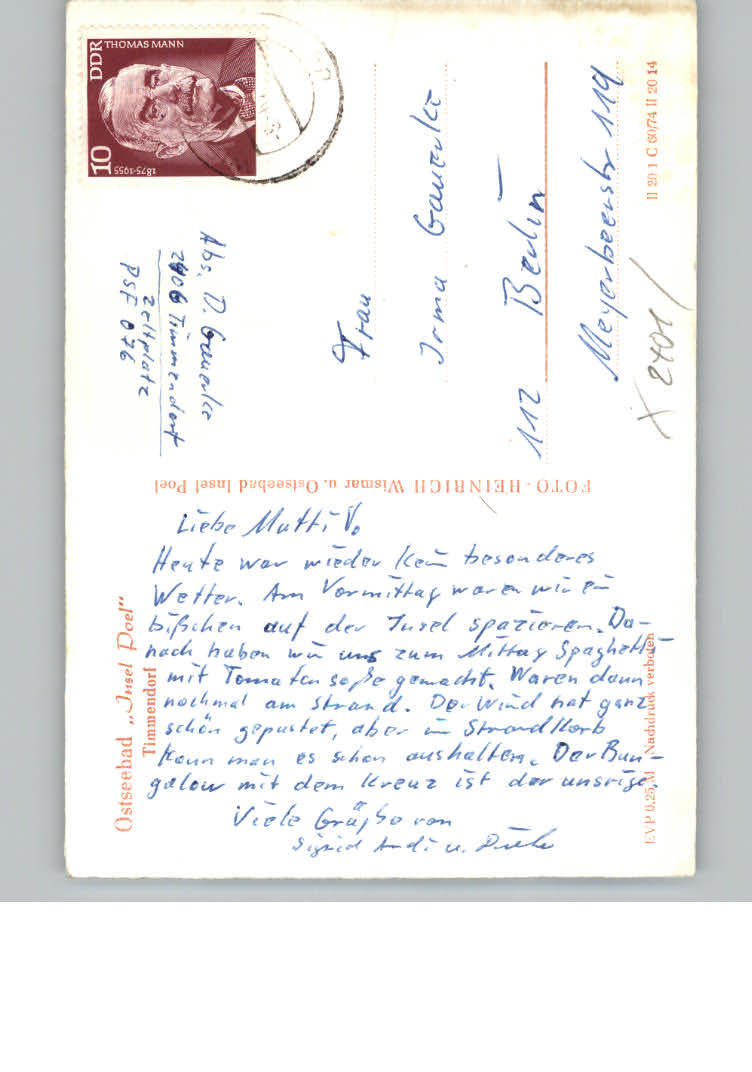 DDR THOMAS MANN
10
1875-1955
Abs. D. Gauerke
2406 Timmendorf
Zeltplatz
PSF 076
Frau
Irma Gauerke
112 Berlin
Meyerbeerstr 119
X 2401/
II 20 1 C 60/74 II 20 14
FOTO-HEINRICH Wismar u. Ostseebad Insel Poel
Ostseebad „Insel Poel"
Timmendorf
EVP 0,25 M Nachdruck verboten
Liebe Mutti V.
Heute war wieder kein besonderes
Wetter. Am Vormittag waren wir ein
bißchen auf der Insel spazieren. Da-
nach haben wir uns zum Mittag Spaghetti
mit Tomatensoße gemacht. Waren dann
nochmal am Strand. Der Wind hat ganz
schön gepustet, aber im Strandkorb
kann man es schon aushalten. Der Bun-
galow mit dem Kreuz ist der unsrige.
Viele Grüße von
Sigrid Andi u.